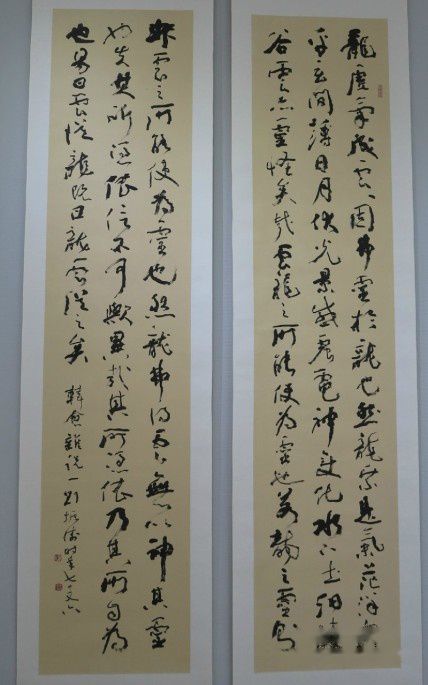 龍虛氣成雲雲固弗靈於龍也然龍乘是氣茫洋
乎玄間薄日月伏光景感震電神變化水下土汩
谷雲亦靈怪矣哉雲龍之所能使為靈也若龍之靈則
非雲之所能使為靈也然龍弗得雲無以神其靈
也失其所憑依信不可歟異哉其所憑依乃其所自為
也易曰雲從龍既曰龍雲從之矣
韓愈雜說一劉振時年七十六